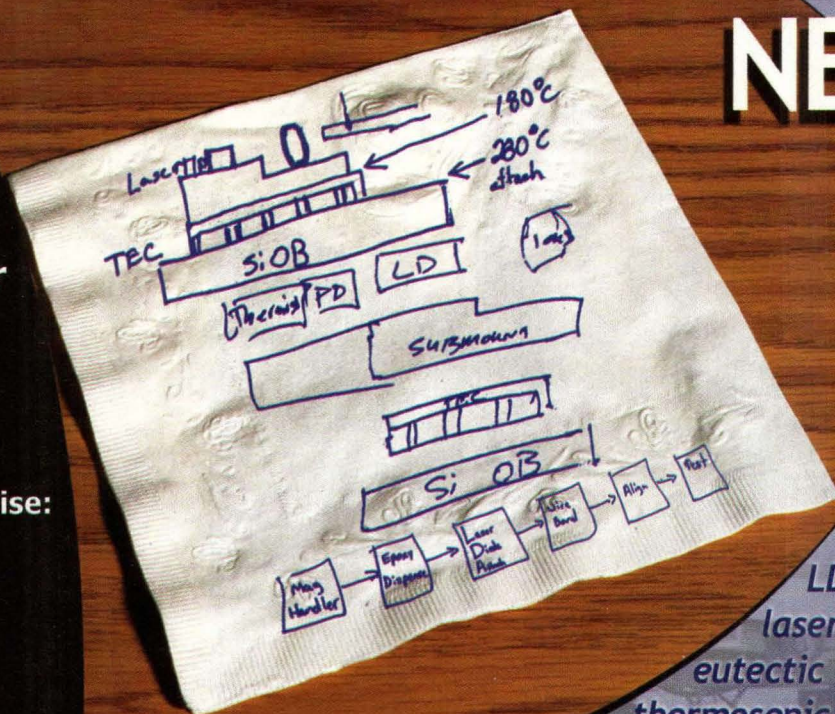 NE
180°C
280°C
attach
Laser
TEC
SiOB
Thermist
PD
LD
SUBMOUNT
TEC
Si OB
Mag
Handler
Epoxy
Dispense
Laser
Diode
Attach
Wire
Bond
Align
Test
r
ise:
laser
eutectic
thermosonic